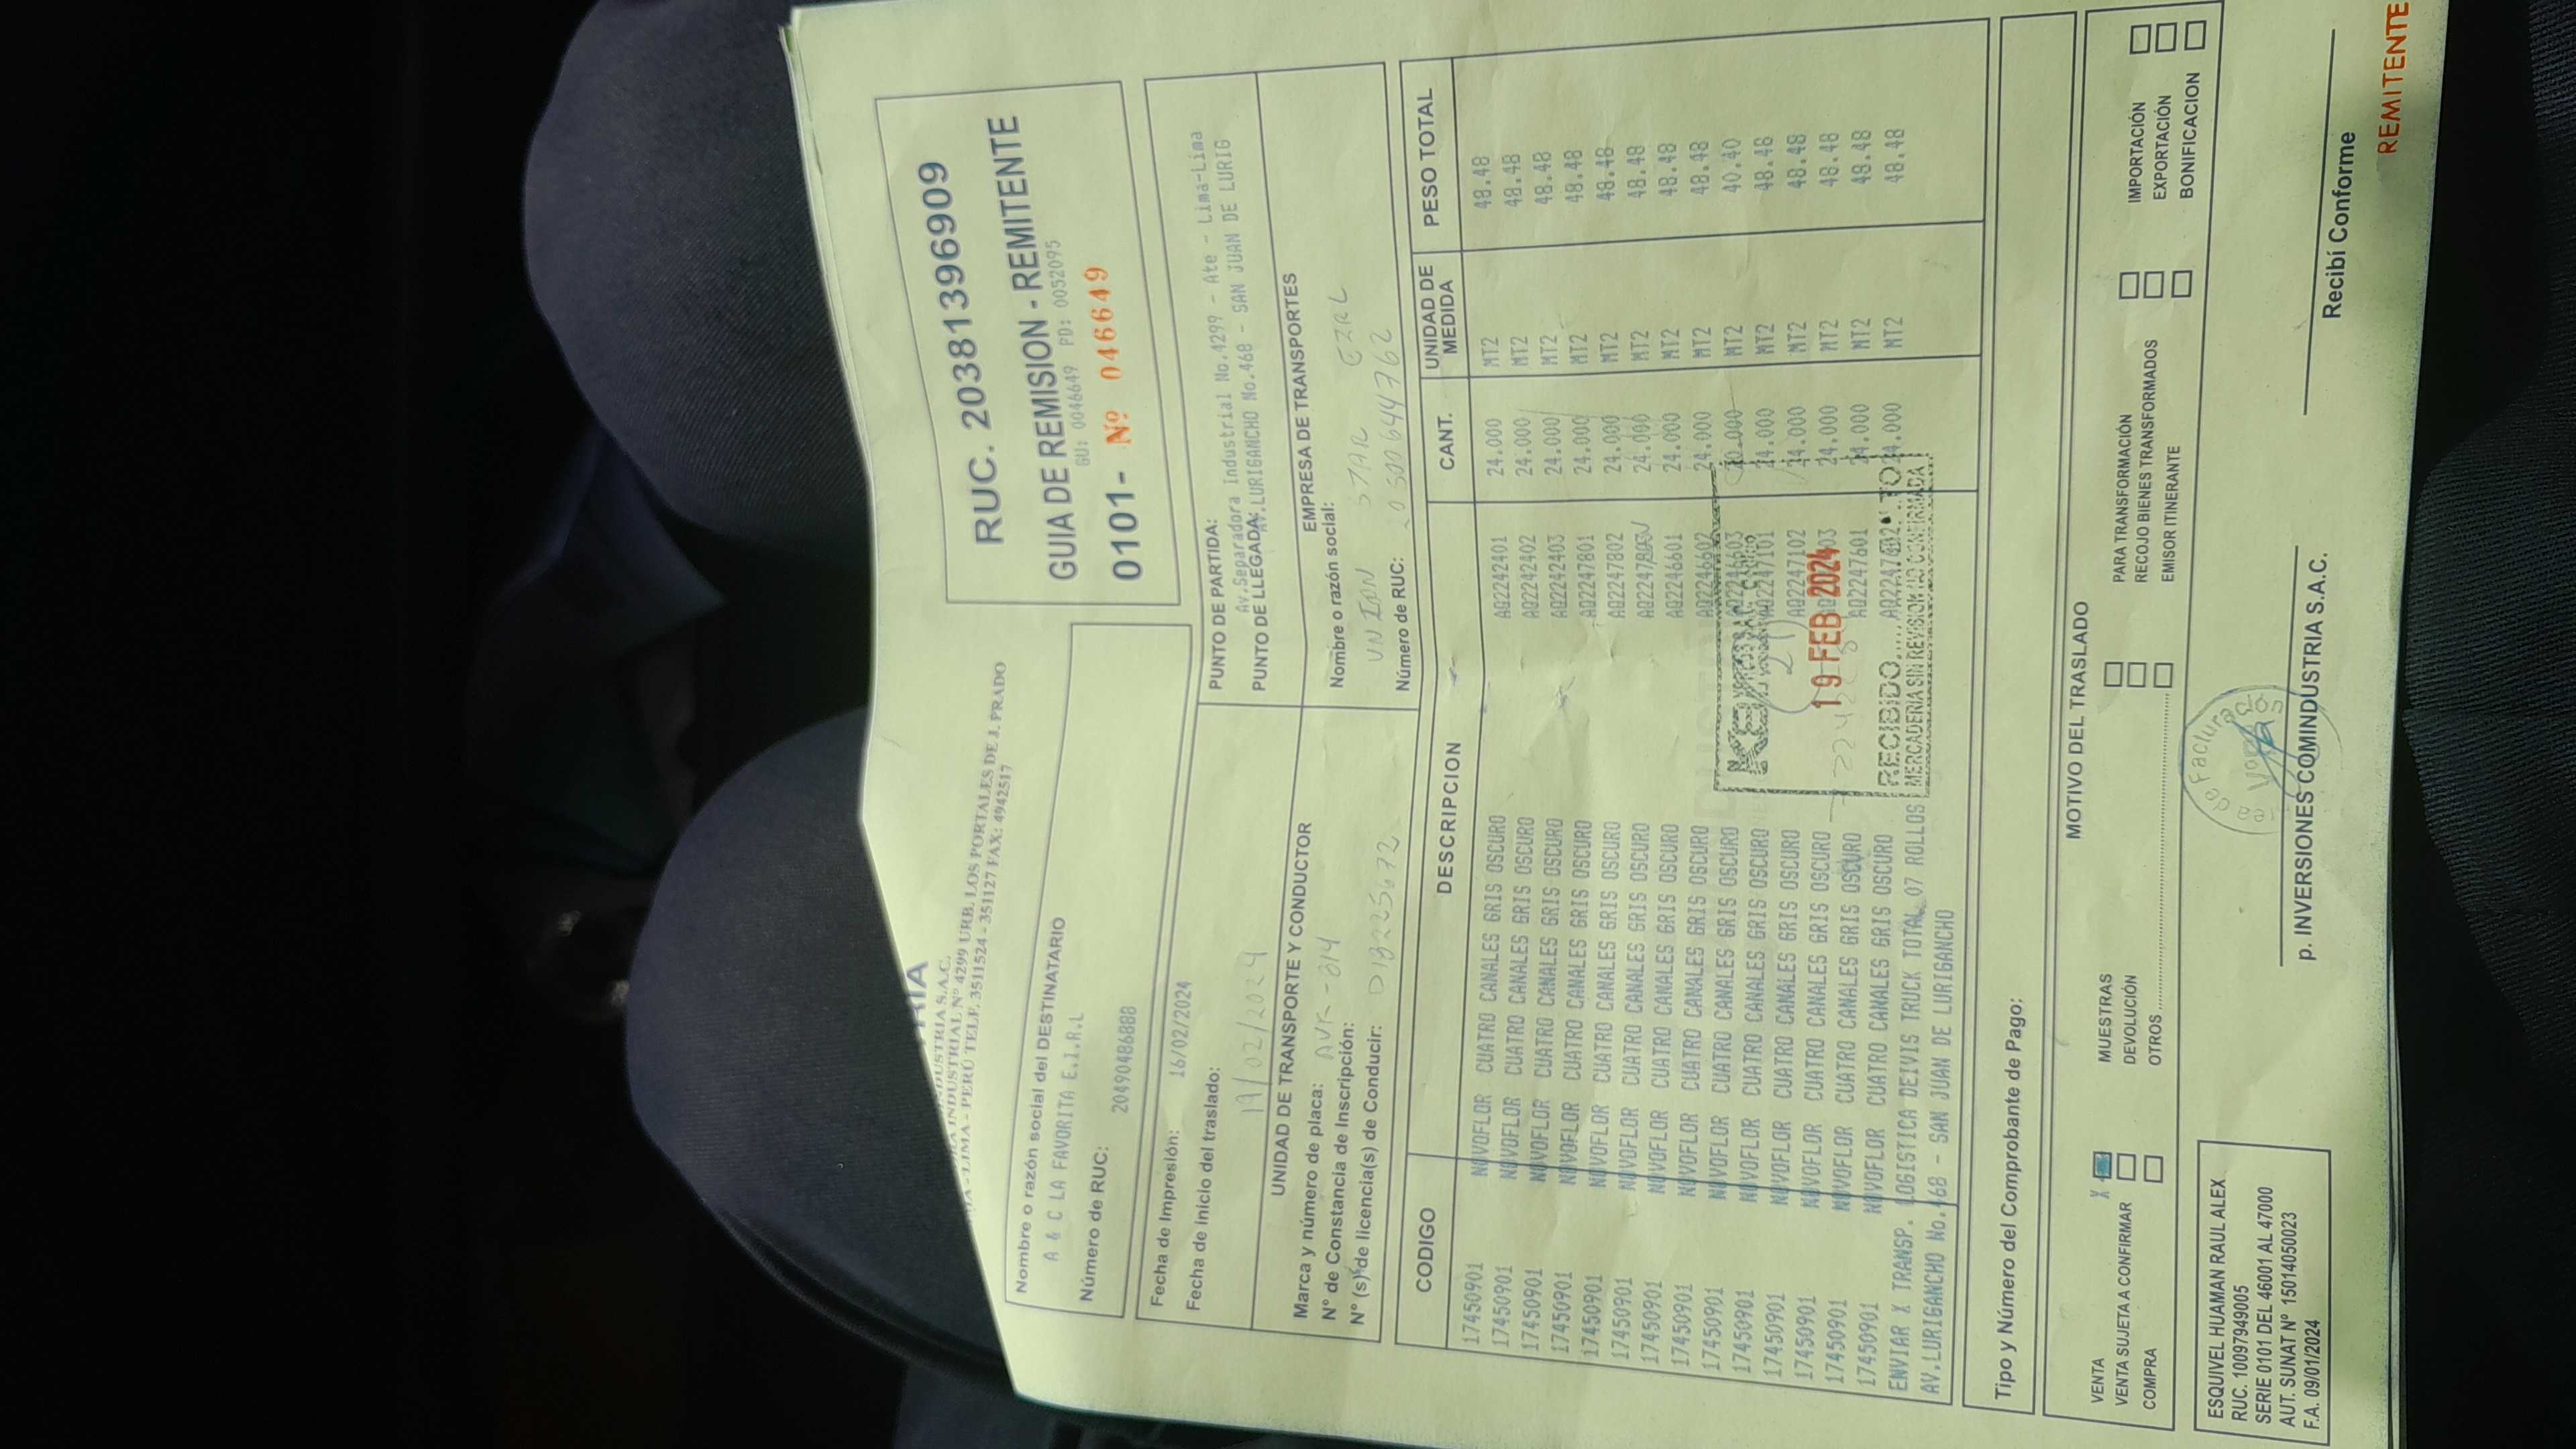 RIA
INDUSTRIA S.A.C.
INDUSTRIAL Nº 4299 URB. LOS PORTALES DE J. PRADO
LIMA - PERÚ TELF. 3511524 - 351127 FAX: 4942517
RUC. 20381396909
GUIA DE REMISION - REMITENTE
GU: 0046649 PD: 0052095
0101- Nº 046649
Nombre o razón social del DESTINATARIO
A & C LA FAVORITA E.I.R.L
Número de RUC:
20490486888
Fecha de Impresión: 16/02/2024
Fecha de Inicio del traslado:
19/02/2024
PUNTO DE PARTIDA:
Av.Separadora Industrial No.4299 - Ate - Lima-Lima
PUNTO DE LLEGADA:
AV.LURIGANCHO No.468 - SAN JUAN DE LURIG
UNIDAD DE TRANSPORTE Y CONDUCTOR
Marca y número de placa: AVK-814
N° de Constancia de Inscripción:
N° (s) de licencia(s) de Conducir:
EMPRESA DE TRANSPORTES
Nombre o razón social:
UNION STAR EIRL
Número de RUC: 20500644762
CODIGO DESCRIPCION CANT. UNIDAD DE MEDIDA PESO TOTAL
17450901 NOVOFLOR CUATRO CANALES GRIS OSCURO AQ2242401 24.000 MT2 48.48
17450901 NOVOFLOR CUATRO CANALES GRIS OSCURO AQ2242402 24.000 MT2 48.48
17450901 NOVOFLOR CUATRO CANALES GRIS OSCURO AQ2242403 24.000 MT2 48.48
17450901 NOVOFLOR CUATRO CANALES GRIS OSCURO AQ2247801 24.000 MT2 48.48
17450901 NOVOFLOR CUATRO CANALES GRIS OSCURO AQ2247802 24.000 MT2 48.48
17450901 NOVOFLOR CUATRO CANALES GRIS OSCURO 24.000 MT2 48.48
17450901 NOVOFLOR CUATRO CANALES GRIS OSCURO AQ2246601 24.000 MT2 48.48
17450901 NOVOFLOR CUATRO CANALES GRIS OSCURO AQ2246602 24.000 MT2 48.48
17450901 NOVOFLOR CUATRO CANALES GRIS OSCURO AQ2246603 20.000 MT2 40.40
17450901 NOVOFLOR CUATRO CANALES GRIS OSCURO AQ2247101 24.000 MT2 48.48
17450901 NOVOFLOR CUATRO CANALES GRIS OSCURO AQ2247102 24.000 MT2 48.48
17450901 NOVOFLOR CUATRO CANALES GRIS OSCURO 24.000 MT2 48.48
17450901 NOVOFLOR CUATRO CANALES GRIS OSCURO AQ2247601 24.000 MT2 48.48
17450901 NOVOFLOR CUATRO CANALES GRIS OSCURO 24.000 MT2 48.48
ENVIAR X TRANSP. LOGISTICA DEIVIS TRUCK TOTAL 07 ROLLOS
AV.LURIGANCHO No.468 - SAN JUAN DE LURIGANCHO
19 FEB 2024
RECIBIDO
MERCADERIA SIN REVISION NO CONFIRMADA
Tipo y Número del Comprobante de Pago:
MOTIVO DEL TRASLADO
VENTA X
VENTA SUJETA A CONFIRMAR
COMPRA
MUESTRAS
DEVOLUCIÓN
OTROS
PARA TRANSFORMACIÓN
RECOJO BIENES TRANSFORMADOS
EMISOR ITINERANTE
IMPORTACIÓN
EXPORTACIÓN
BONIFICACION
ESQUIVEL HUAMAN RAUL ALEX
RUC. 10097949005
SERIE 0101 DEL 46001 AL 47000
AUT. SUNAT Nº 15014050023
F.A. 09/01/2024
Facturación
p. INVERSIONES COMINDUSTRIA S.A.C.
Recibí Conforme
REMITENTE